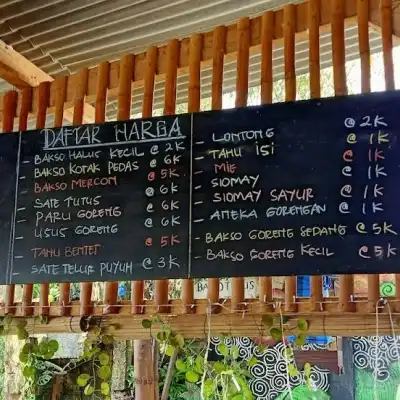 DAFTAR HARGA
- BAKSO HALUS KECIL @ 2K
BAKSO KOTAK PEDAS @ 6K
- BAKSO MERCON @ 5K
- SATE TUTUS @ 6K
- PARU GORENG @ 6K
- USUS GORENG @ 6K
- TAHU BENTET @ 5K
- SATE TELUR PUYUH @ 3K
- LONTONG @ 2K
- TAHU ISI @ 1K
- MIE @ 1K
- SIOMAY @ 1K
- SIOMAY SAYUR @ 1K
- ANEKA GORENGAN @ 1K
- BAKSO GORENG SEDANG @ 5K
- BAKSO GORENG KECIL @ 5K